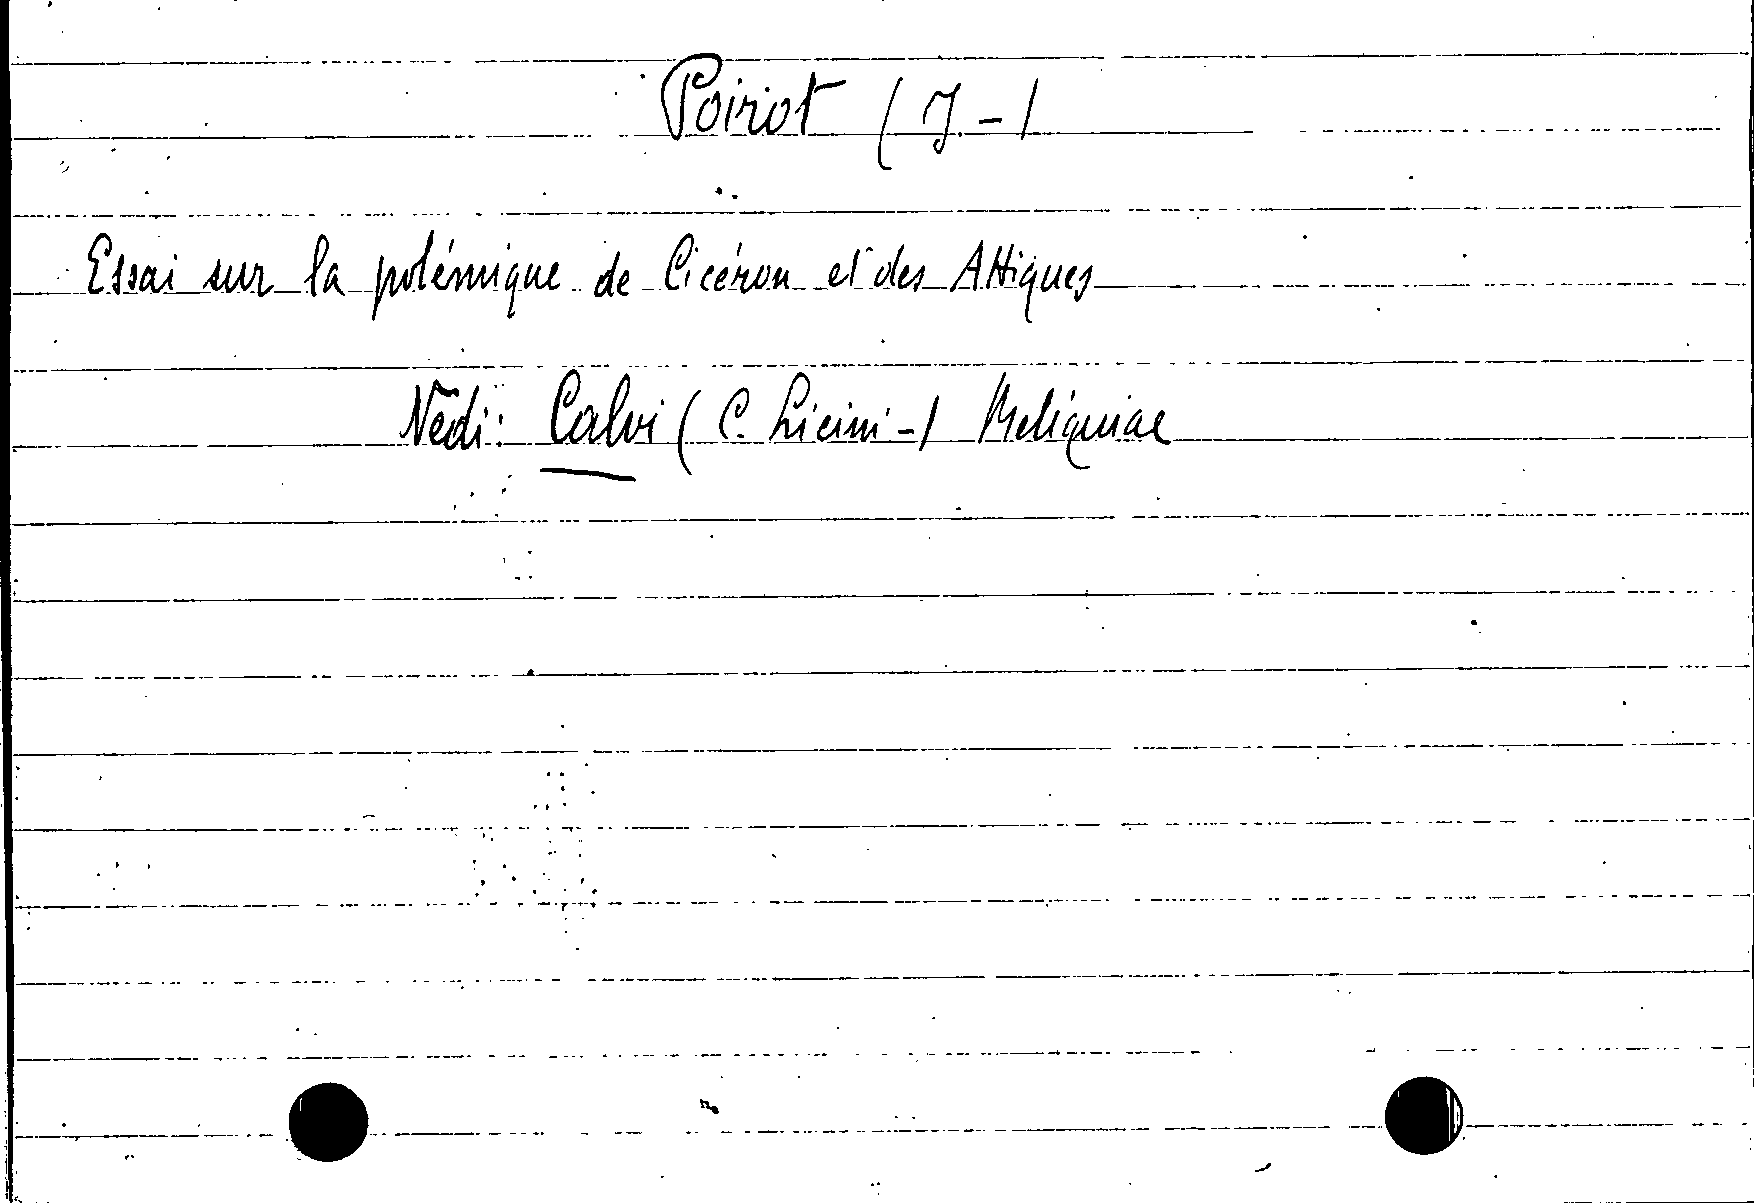 Poirot (J-)
Essai sur la polémique de Cicéron et des Attiques
Vedi: Calvi (C. Licini-) Reliquiae